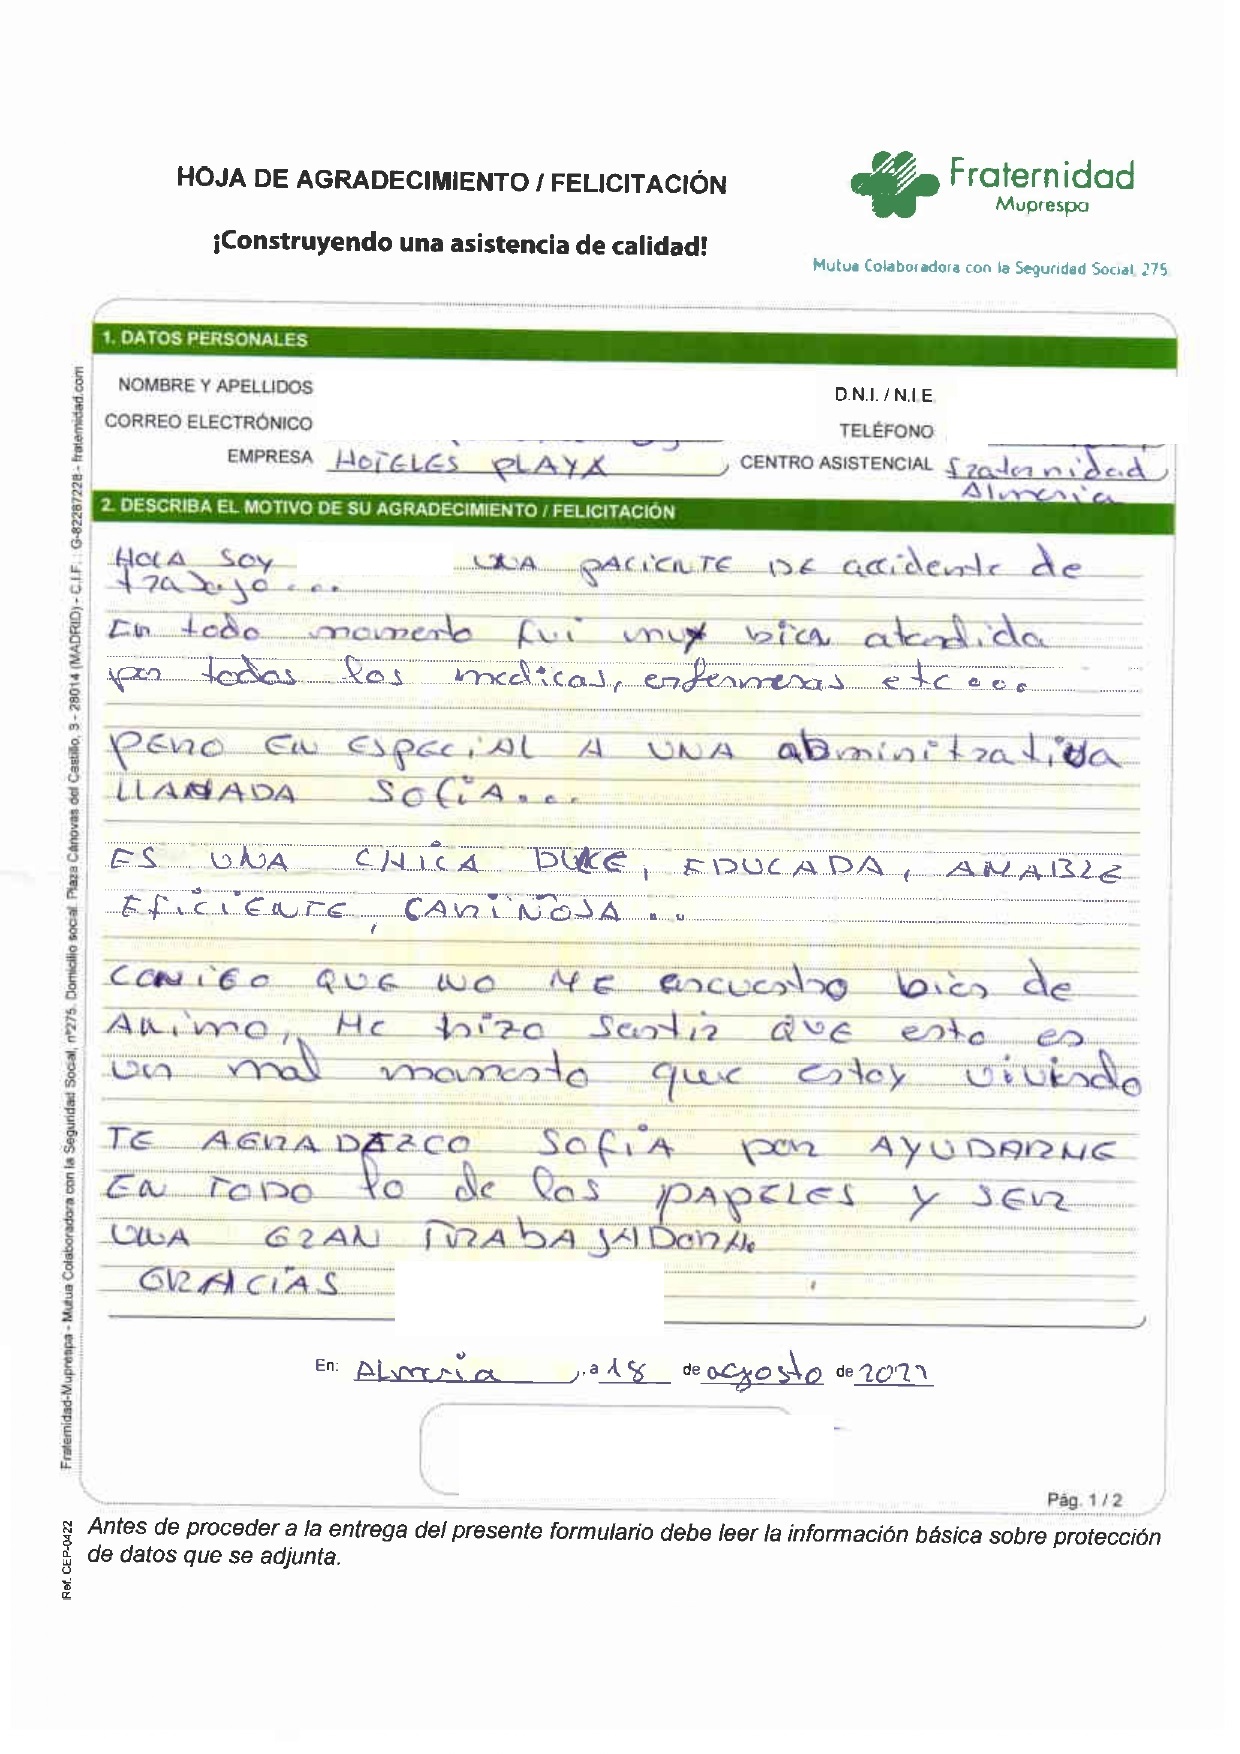 HOJA DE AGRADECIMIENTO / FELICITACIÓN
¡Construyendo una asistencia de calidad!
Fraternidad
Muprespa
Mutua Colaboradora con la Seguridad Social, 275
1. DATOS PERSONALES
NOMBRE Y APELLIDOS
D.N.I. / N.I.E
CORREO ELECTRÓNICO
TELÉFONO
EMPRESA HOTELES PLAYA, CENTRO ASISTENCIAL fraternidad,
Almeria
2. DESCRIBA EL MOTIVO DE SU AGRADECIMIENTO / FELICITACIÓN
HOLA SOY UNA PACIENTE DE accidente de
trabajo...
En todo momento fui muy bien atendida
por todos los medicas, enfermeras etc...
PERO EN ESPECIAL A UNA abminitrativa
LLAMADA SOFíA...
ES UNA CHICA DULCE, EDUCADA, AMABLE
EFICIENTE, CARIÑOSA..
CONIGO QUE NO ME encuentro bien de
ANIMO, Me hizo sentir QUE esto es
un mal momento que estoy viviendo
TE AGRADEZCO SOFíA por AYUDARME
EN TODO lo de los PAPELES Y SER
UNA GRAN TRABAJADORA.
GRACIAS
En: ALmería, a 18 de agosto de 2022
Pág. 1 / 2
Antes de proceder a la entrega del presente formulario debe leer la información básica sobre protección
de datos que se adjunta.
Fraternidad-Muprespa - Mutua Colaboradora con la Seguridad Social, nº275. Domicilio social: Plaza Cánovas del Castillo, 3 - 28014 (MADRID) - C.I.F. : G-82287228 - fraternidad.com
Ref. CEP-0422